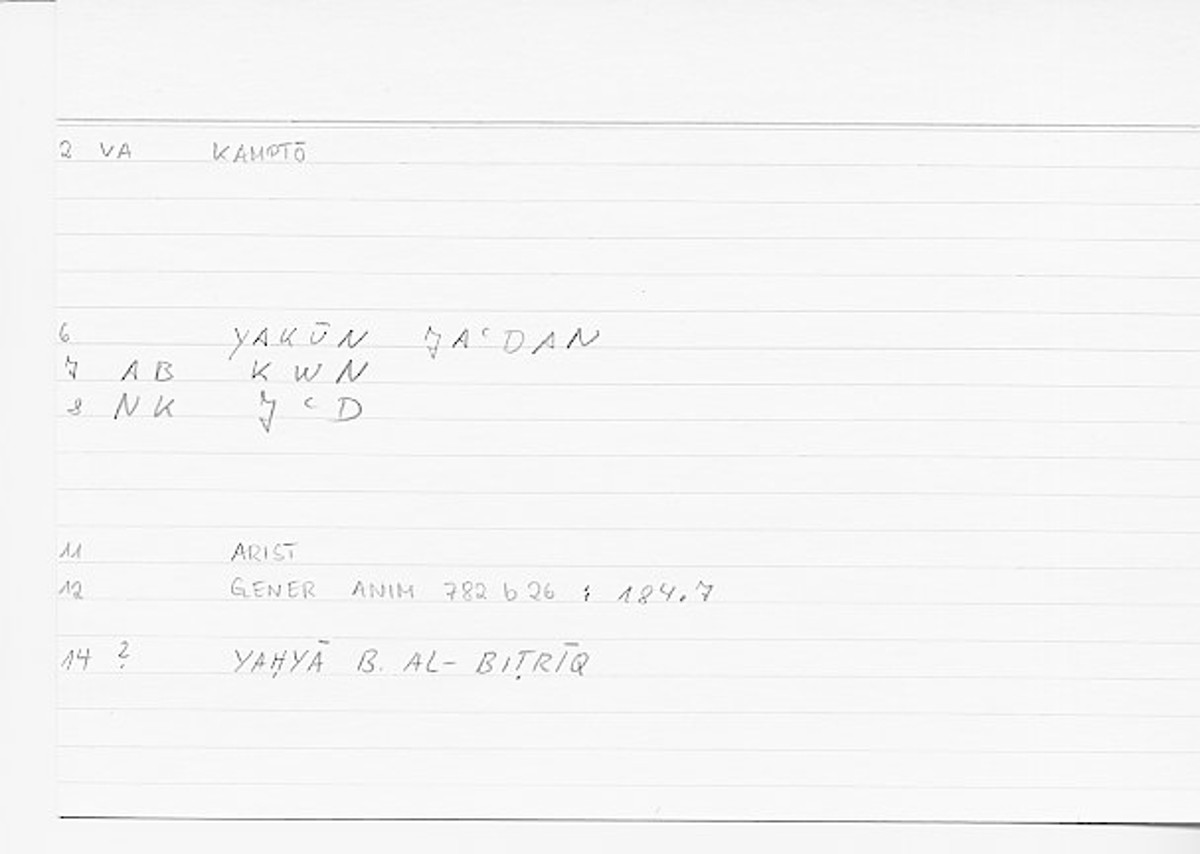 2 VA KAMPTŌ
6 YAKŪN ǦAʿDAN
7 AB K W N
8 NK Ǧ ʿ D
11 ARIST
12 GENER ANIM 782 b 26 : 184.7
14 ? YAḤYĀ B. AL-BIṬRĪQ